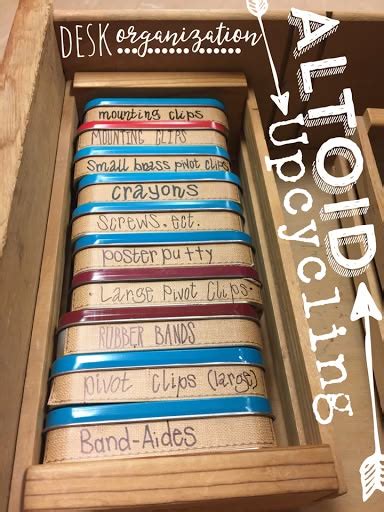 DESK organization
ALTOID
Upcycling
mounting clips
MOUNTING CLIPS
Small brass pivot clips
crayons
Screws. ect.
poster putty
Large Pivot Clips
RUBBER BANDS
pivot clips (large)
Band-Aides